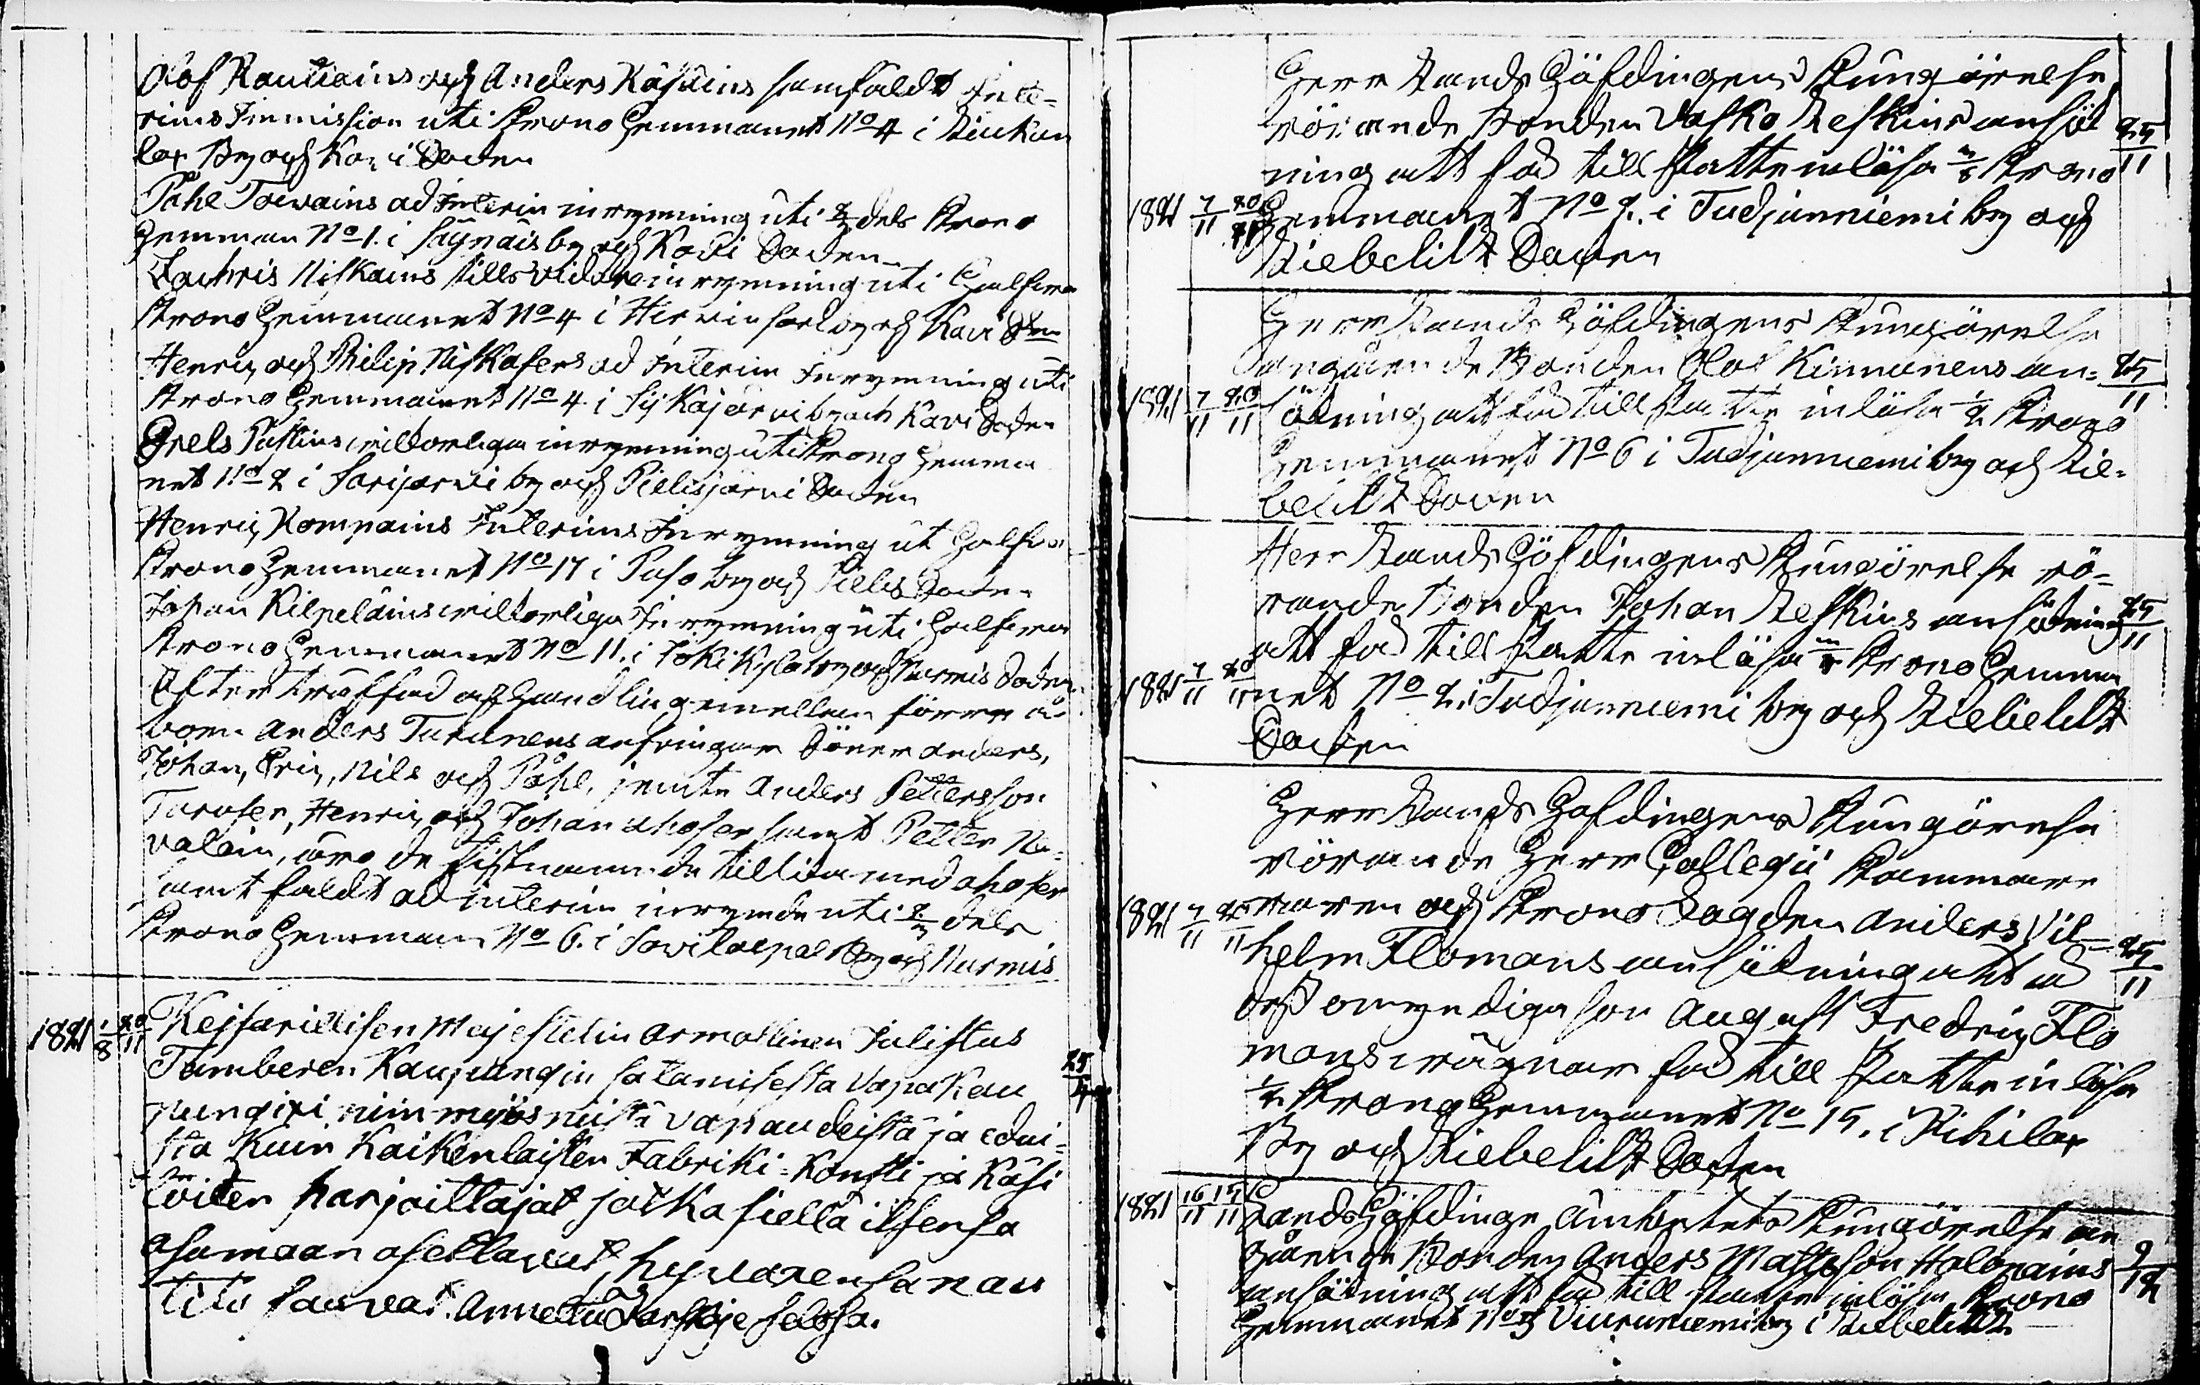 Olof Rautiains och Anders Kåsains samfäldt Inte-
rims Immission uti Krono Hemmanet No 4 i
lax By och Kavi Socken
Påhl Toivains ad Interim inrymning uti 2/3 dels Krono
Hemman No 1. i Säynäis by och Kavi Socken
Zachris Niskains tills vidare inrymning uti Halfva
Krono Hemmanet No 4 i by och Kavi Skn
Henric och Philip Niskasers ad Interim Inrymning uti
Krono Hemmanet No 4. i Sijkajärvi by och Kavi Socken
Grels Pastins inrymning uti Krono Hemma
net No 2 i Sarijærvi by och Pielisjärvi Socken
Henric Kompains Interims Inrymning uti Halfva
Krono Hemmanet No 17 i Puso by och Pielis Socken
Johan Kilpeläins Inrymning uti Halfva
Krono Hemmanet No 11. i Jokikylä by och Nurmis Socken
Efter träffad afhandling emellan förre å-
boen Anders Turunens arfvingar Söner Anders,
Johan, Eric, Nils och Påhl, jemte Anders Pettersson
Turuser, Henric och Johan Ahoser samt Petter
valain, äro de sistnämnde tillika med Ahoser
samfäldt ad interim inrymde uti 2/3 dels
Krono Hemman No 6. i By och Nurmis
1821 1/8 20/11 Kejsarillisen Majestetin Armollinen Julistus
Tamberen Kaupungin satamisesta Vapakau 25/
pungixi, niin myös niistä vapaudeista ja edui-
sta Kuin Kaikenlaisten Fabriki- Konsti ja Käsi
töiden harjoittajat jotka siellä itsensä
asumaan asettavat, hyväxensä nau
titi saavat. Annettu Sarskoje selossa.
Herr Lands Höfdingens Kungörelse
rörande Bonden Vasko Leskins ansök 25/11
ning att få till skatte inlösa Krono
1821 7/11 20/11 Hemmanet No 2. i Tudjunniemi by och
Liebelitz Socken
Herr Lands Höfdingens Kungörelse
angående Bonden Olof Kinnunens an- 25/11
1821 7/11 20/11 sökning att få till skatte inlösa 1/2 Krono
Hemmanet No 6 i Tudjunniemi by och Lie-
belitz Socken
Herr Lands Höfdingens Kungörelse rö-
rande Bonden Johan Leskins ansökning 25/11
att få till skatte inlösa Krono Hemma
1821 7/11 20/11 net No 2. i Tudjunniemi by och Liebelitz
Socken
Herr Lands Höfdingens Kungörelse
rörande Herr Collegii Kammere
1821 7/11 20/11 raren och Krono Fogden Anders Vil-
helm Flomans ansökning att å 25/11
dess omyndiga son August Fredric Flo
mans vägnar få till skatte inlösa
1/2 Krono Hemmanet No 15. i Rikilax
By och Liebelitz Socken
1821 16/11 19/11 Lands Höfdinge Embetets Kungörelse an
gående Bonden Anders Mattsson Halonains 9/12
ansökning att få till skatte inlösa Krono
Hemmanet No 3 Viuruniemi by i Liebelitz